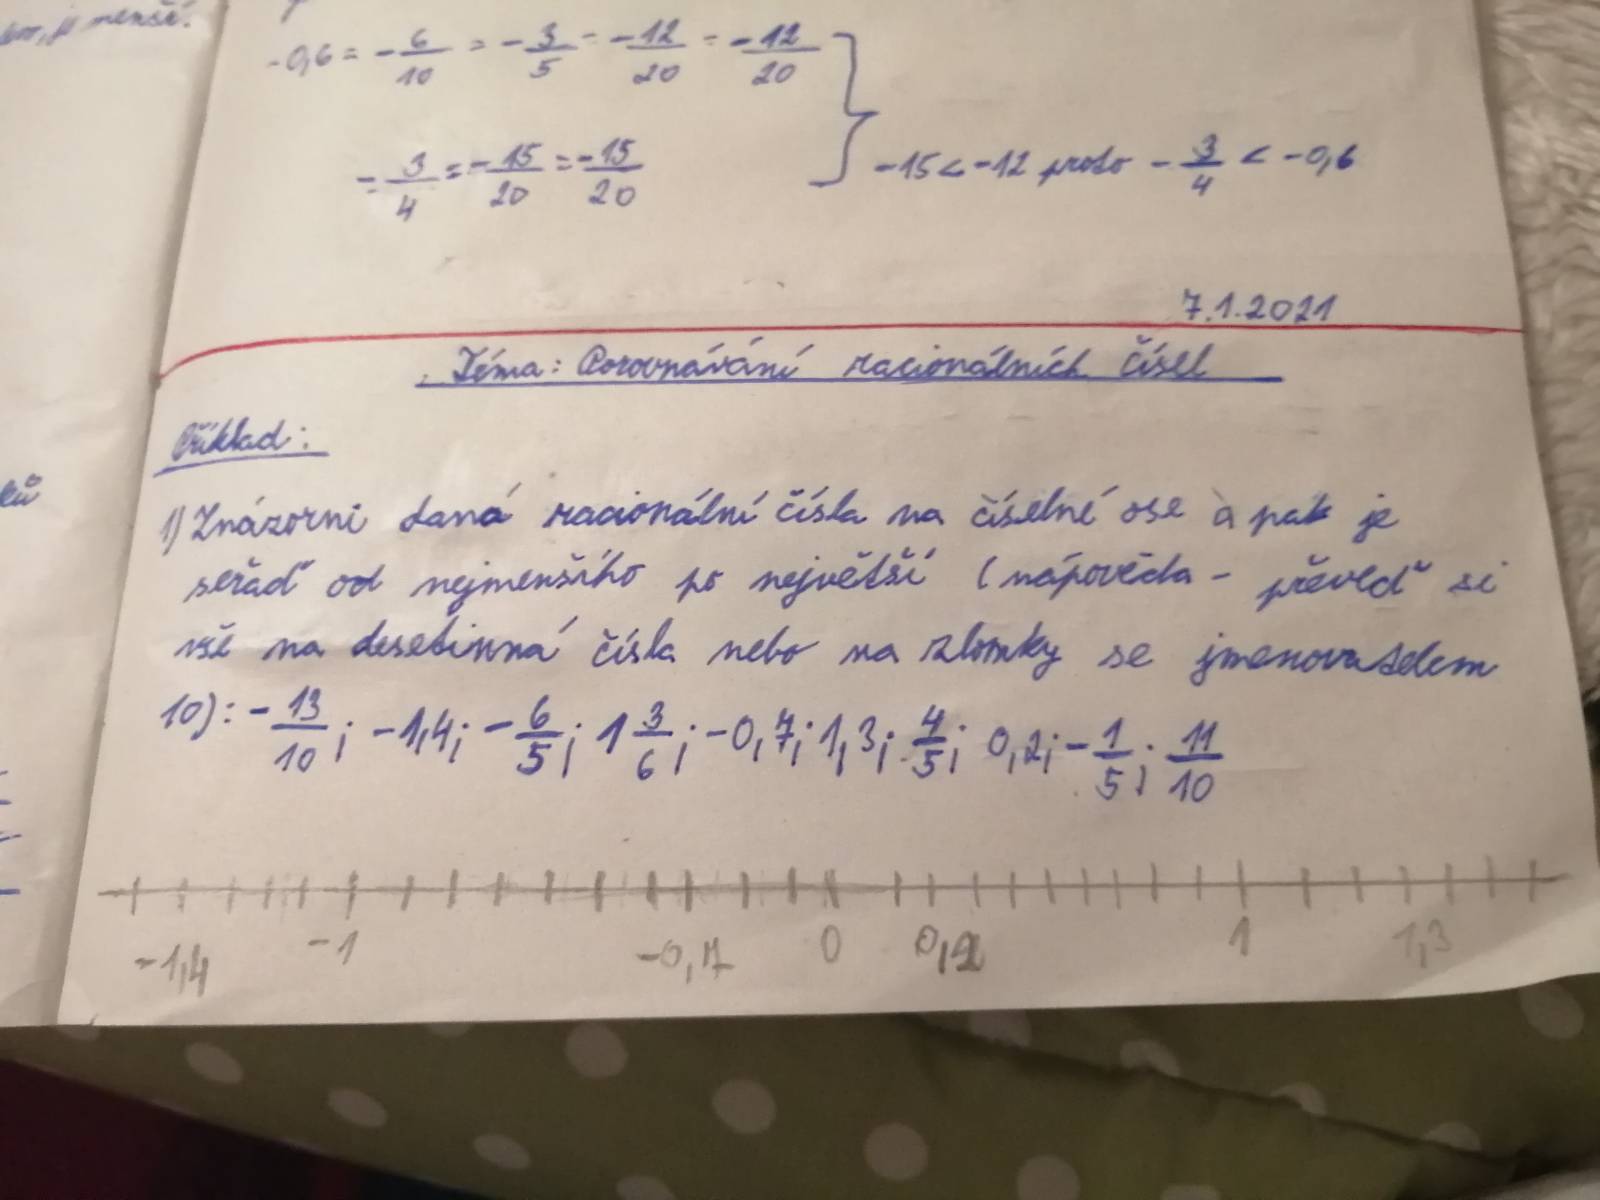 je menší.
-0,6 = -6/10 = -3/5 = -12/20 = -12/20
-3/4 = -15/20 = -15/20
-15 < -12 proto -3/4 < -0,6
7.1.2021
Téma: Porovnávání racionálních čísel
Příklad:
1) Znázorni daná racionální čísla na číselné ose a pak je
seřaď od nejmenšího po největší (nápověda - převeď si
vše na desetinná čísla nebo na zlomky se jmenovatelem
10): -13/10; -1,4; -6/5; 1 3/6; -0,7; 1,3; 4/5; 0,2; -1/5; 11/10
-1,4 -1 -0,7 0 0,2 1 1,3